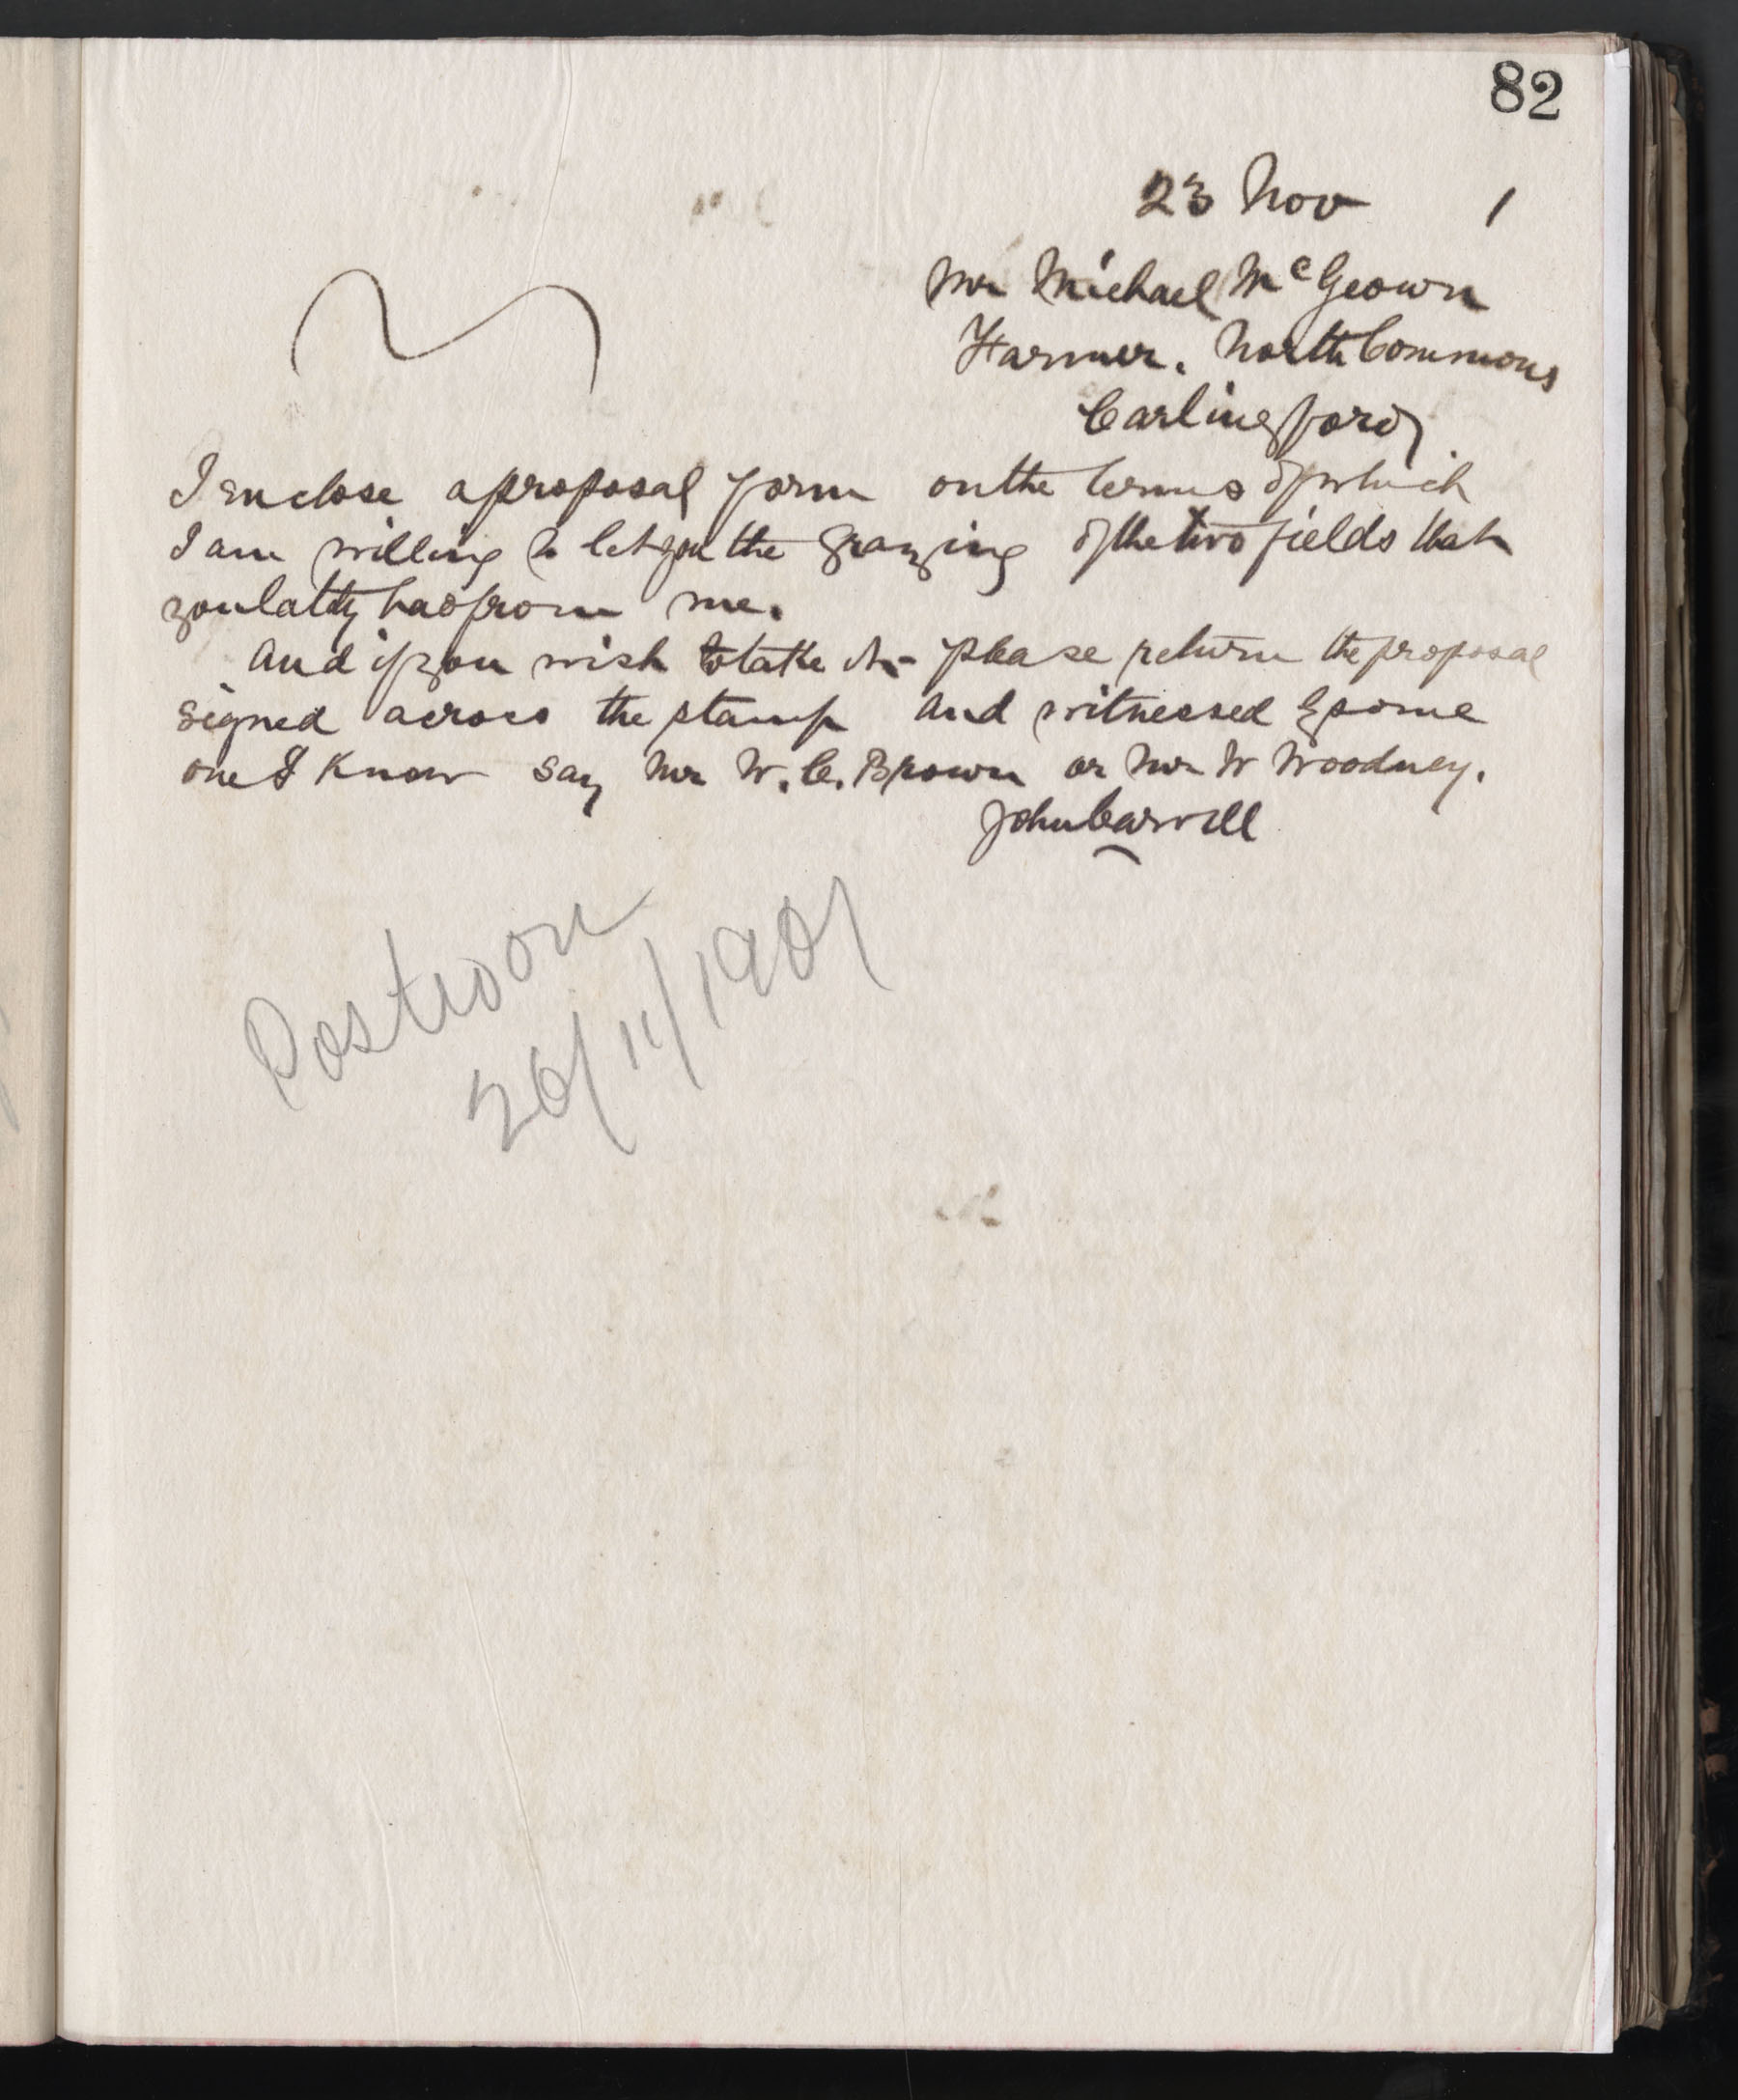 82
23 Nov 1
Mr Michael McGeown
Farmer. North Commons
Carlingford
I enclose a proposal form on the terms of which
I am willing to let you the grazing of the two fields that
you lately had from me.
And if you wish to take it - please return the proposal
signed across the stamp and witnessed by some
one I know say Mr W. C. Brown or Mr W Woodney.
John Carvill
Posted on
26/11/1901